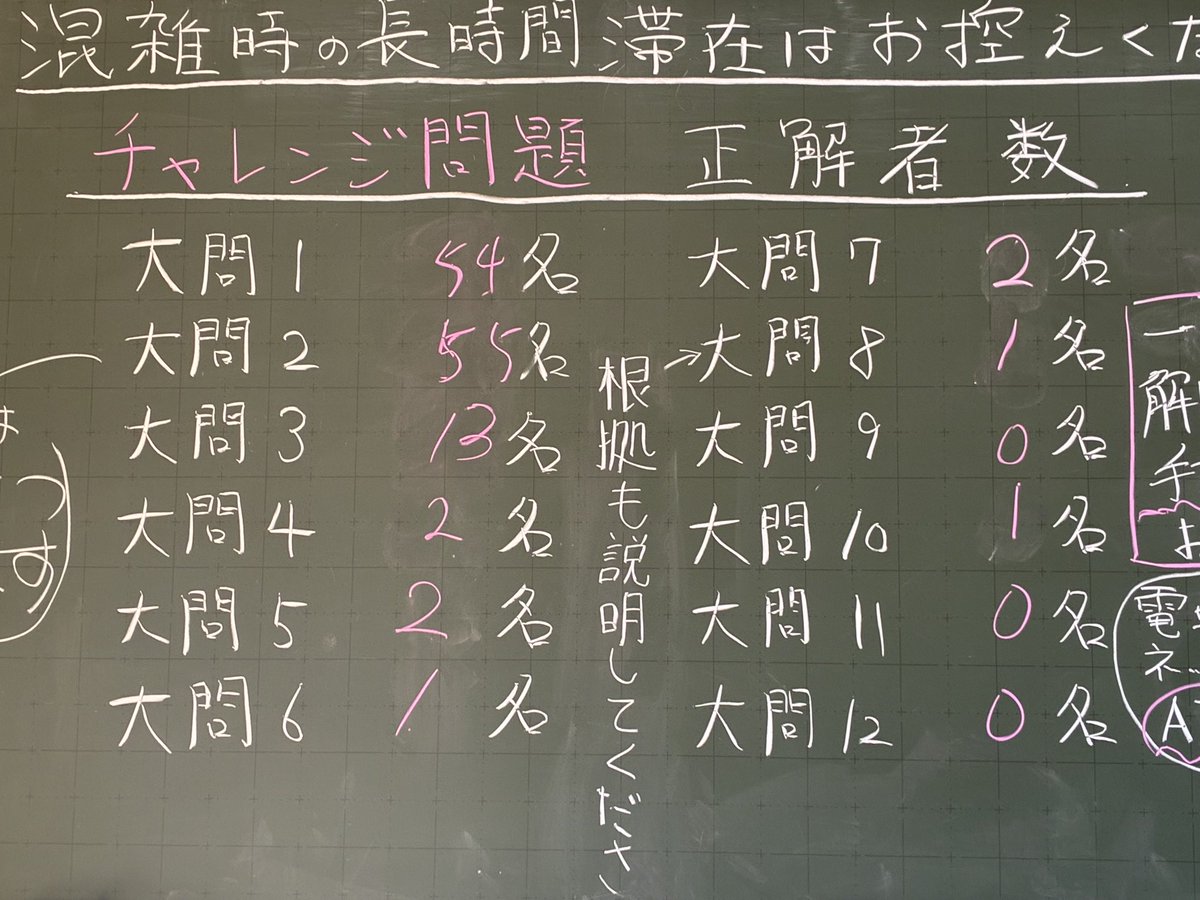 混雑時の長時間滞在はお控えくだ
チャレンジ問題 正解者数
大問1 54名
大問2 55名
大問3 13名
大問4 2名
大問5 2名
大問6 1名
根拠も説明してください
大問7 2名
→大問8 1名
大問9 0名
大問10 1名
大問11 0名
大問12 0名
は
つ
す
一
解
手
よ
電
ネ
A